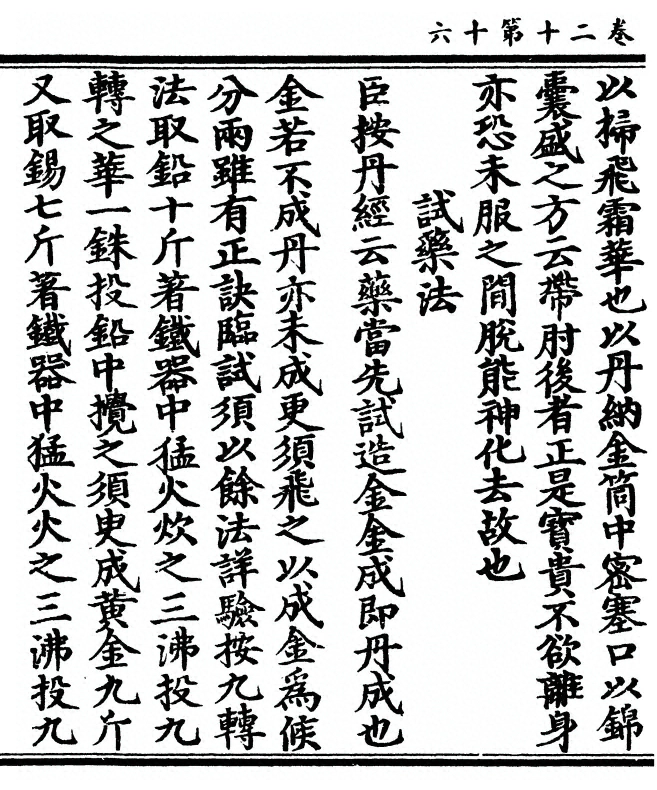 卷二十第十六
以掃飛霜華也以丹納金筒中密塞口以錦
囊盛之方云帶肘後者正是寶貴不欲離身
亦恐未服之間脫能神化去故也
試藥法
臣按丹經云藥當先試造金金成即丹成也
金若不成丹亦未成更須飛之以成金爲候
分兩雖有正訣臨試須以餘法詳驗按九轉
法取鉛十斤著鐵器中猛火炊之三沸投九
轉之華一銖投鉛中攪之須臾成黃金九斤
又取錫七斤著鐵器中猛火火之三沸投九